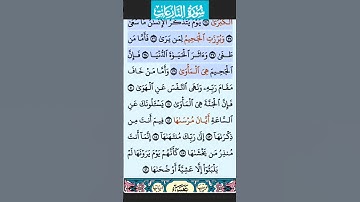 سُورَةُ النَّازِعَاتِ
ٱلۡكُبۡرَىٰ ٣٤ يَوۡمَ يَتَذَكَّرُ ٱلۡإِنسَٰنُ مَا سَعَىٰ
٣٥ وَبُرِّزَتِ ٱلۡجَحِيمُ لِمَن يَرَىٰ ٣٦ فَأَمَّا مَن
طَغَىٰ ٣٧ وَءَاثَرَ ٱلۡحَيَوٰةَ ٱلدُّنۡيَا ٣٨ فَإِنَّ
ٱلۡجَحِيمَ هِيَ ٱلۡمَأۡوَىٰ ٣٩ وَأَمَّا مَنۡ خَافَ
مَقَامَ رَبِّهِۦ وَنَهَى ٱلنَّفۡسَ عَنِ ٱلۡهَوَىٰ ٤٠
فَإِنَّ ٱلۡجَنَّةَ هِيَ ٱلۡمَأۡوَىٰ ٤١ يَسۡـَٔلُونَكَ عَنِ
ٱلسَّاعَةِ أَيَّانَ مُرۡسَىٰهَا ٤٢ فِيمَ أَنتَ مِن
ذِكۡرَىٰهَآ ٤٣ إِلَىٰ رَبِّكَ مُنتَهَىٰهَآ ٤٤ إِنَّمَآ أَنتَ
مُنذِرُ مَن يَخۡشَىٰهَا ٤٥ كَأَنَّهُمۡ يَوۡمَ يَرَوۡنَهَا لَمۡ
يَلۡبَثُوٓاْ إِلَّا عَشِيَّةً أَوۡ ضُحَىٰهَا ٤٦